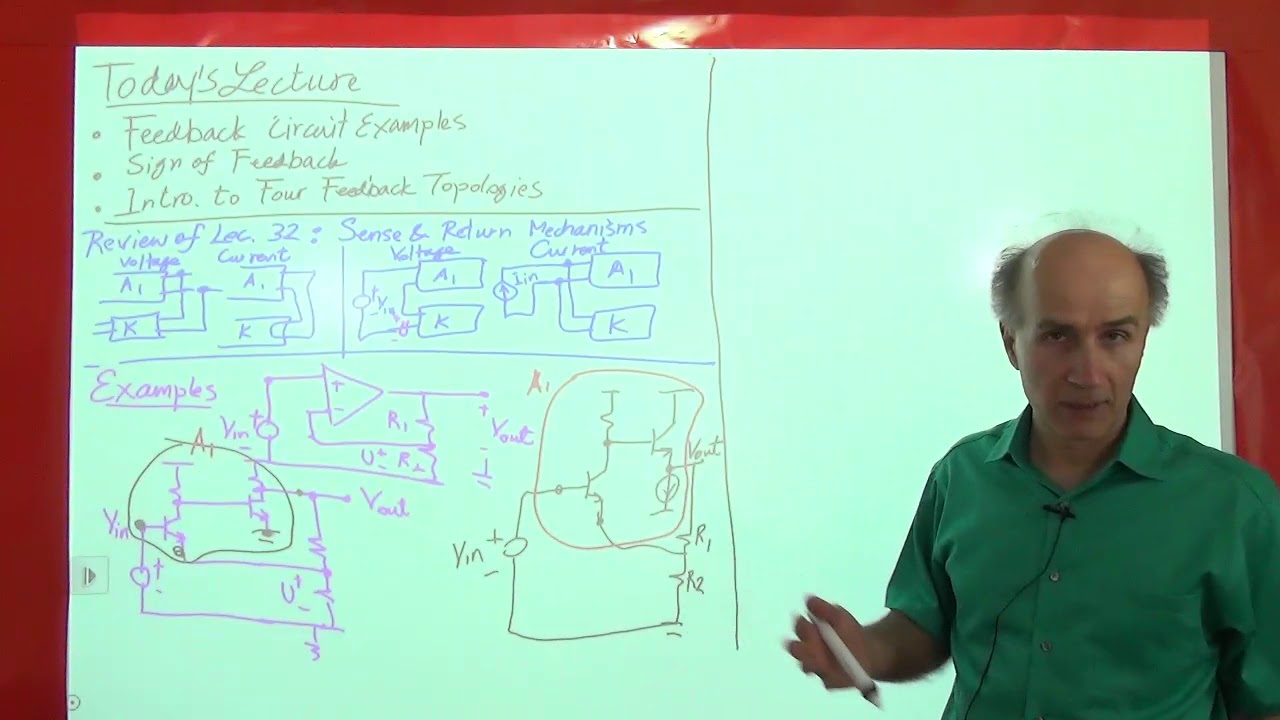 Today's Lecture
• Feedback Circuit Examples
• Sign of Feedback
• Intro. to Four Feedback Topologies
Review of Lec. 32 : Sense & Return Mechanisms
Voltage Current Voltage Current
A1 A1 A1 Iin A1
+ Vin -
K K K K
Examples
Vin + - + - R1 + Vout -
U + - R2
A1
Vin Vout
+ -
U + -
A1
Vout
Vin + - R1
R2